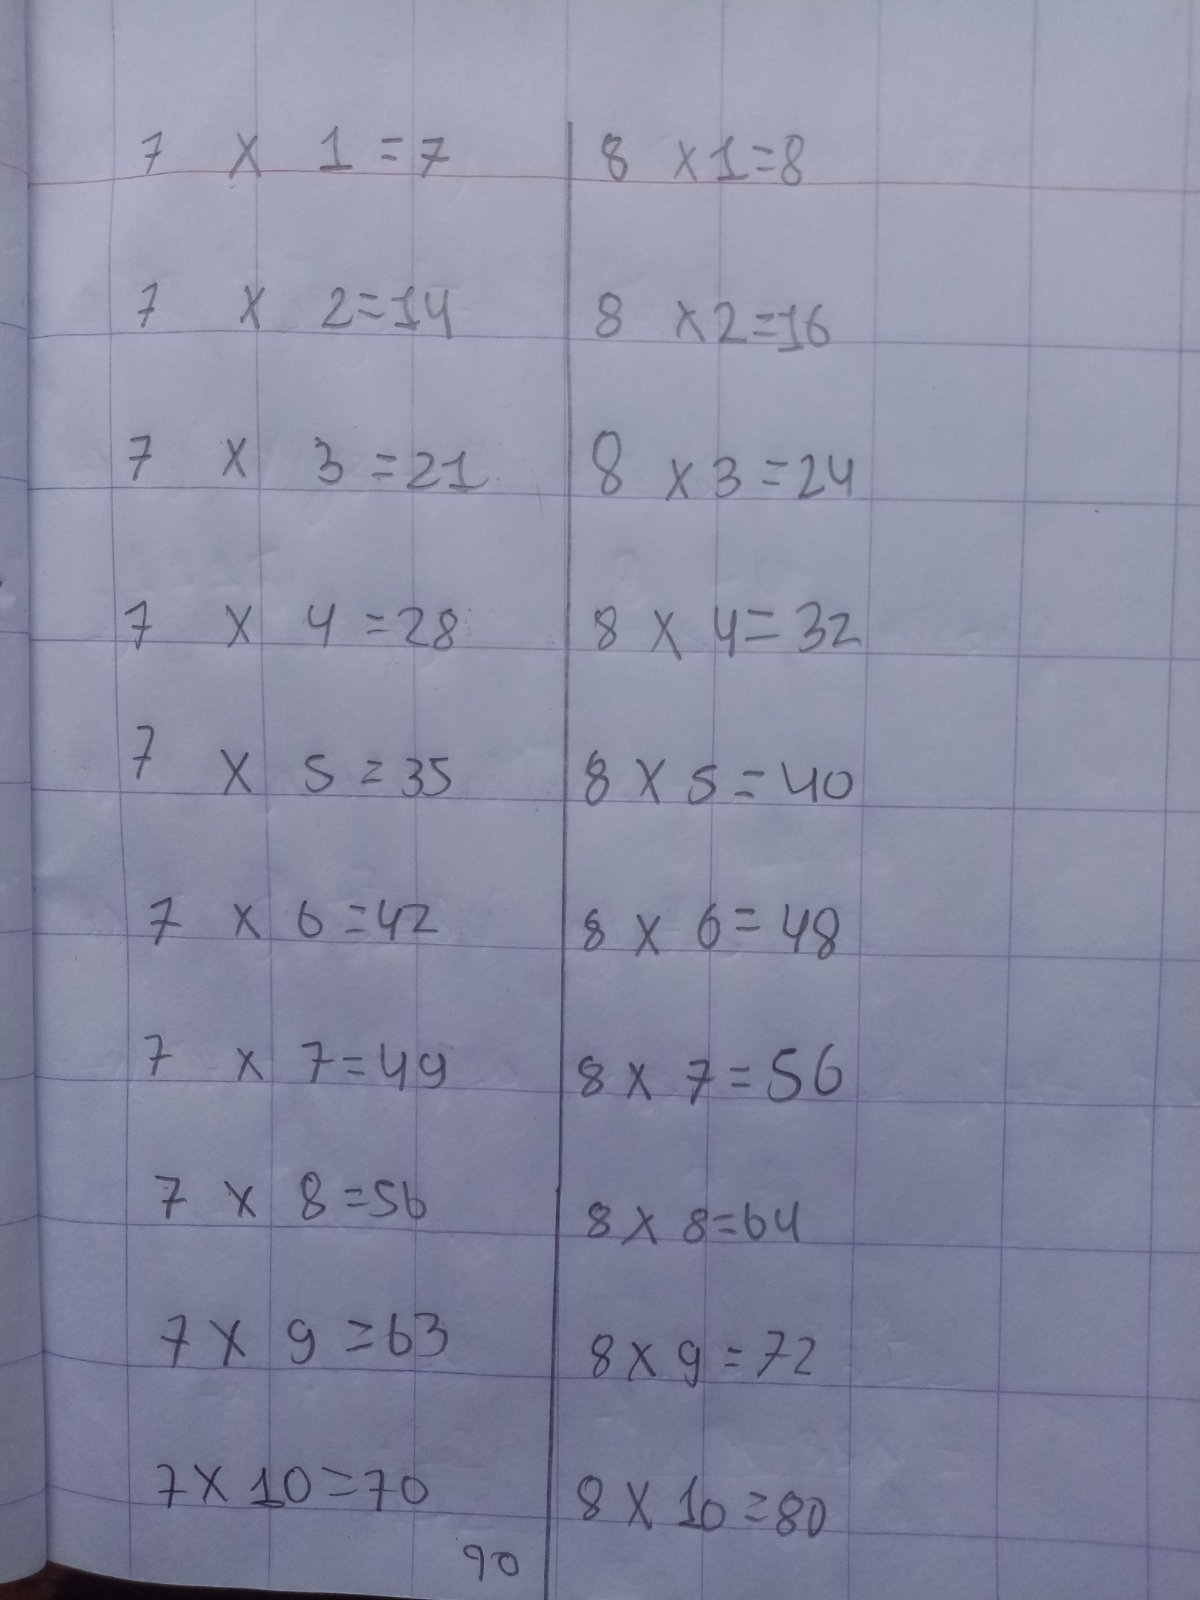 7 x 1 = 7
7 x 2 = 14
7 x 3 = 21
7 x 4 = 28
7 x 5 = 35
7 x 6 = 42
7 x 7 = 49
7 x 8 = 56
7 x 9 = 63
7 x 10 = 70
8 x 1 = 8
8 x 2 = 16
8 x 3 = 24
8 x 4 = 32
8 x 5 = 40
8 x 6 = 48
8 x 7 = 56
8 x 8 = 64
8 x 9 = 72
8 x 10 = 80
90